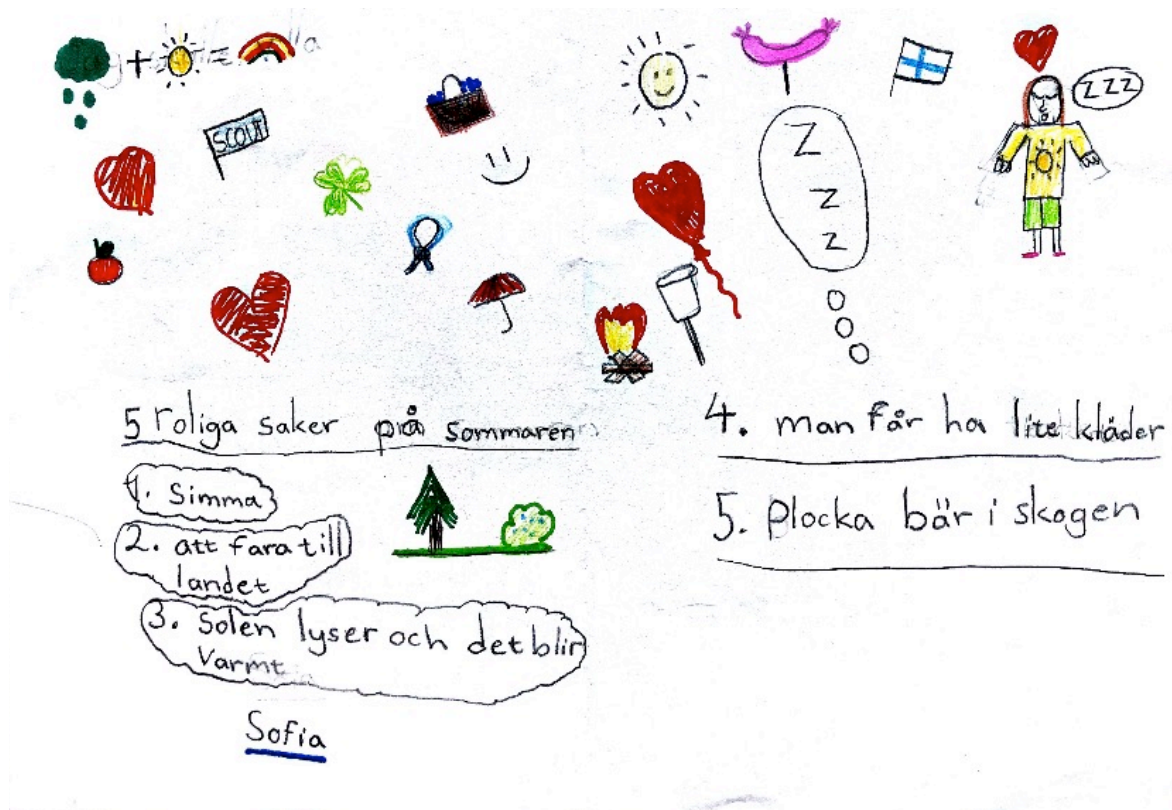 + =
SCOUT
ZZZ
Z
Z
Z
5 roliga saker på sommaren
1. Simma
2. att fara till
landet
3. Solen lyser och det blir
varmt
Sofia
4. man får ha lite kläder
5. Plocka bär i skogen